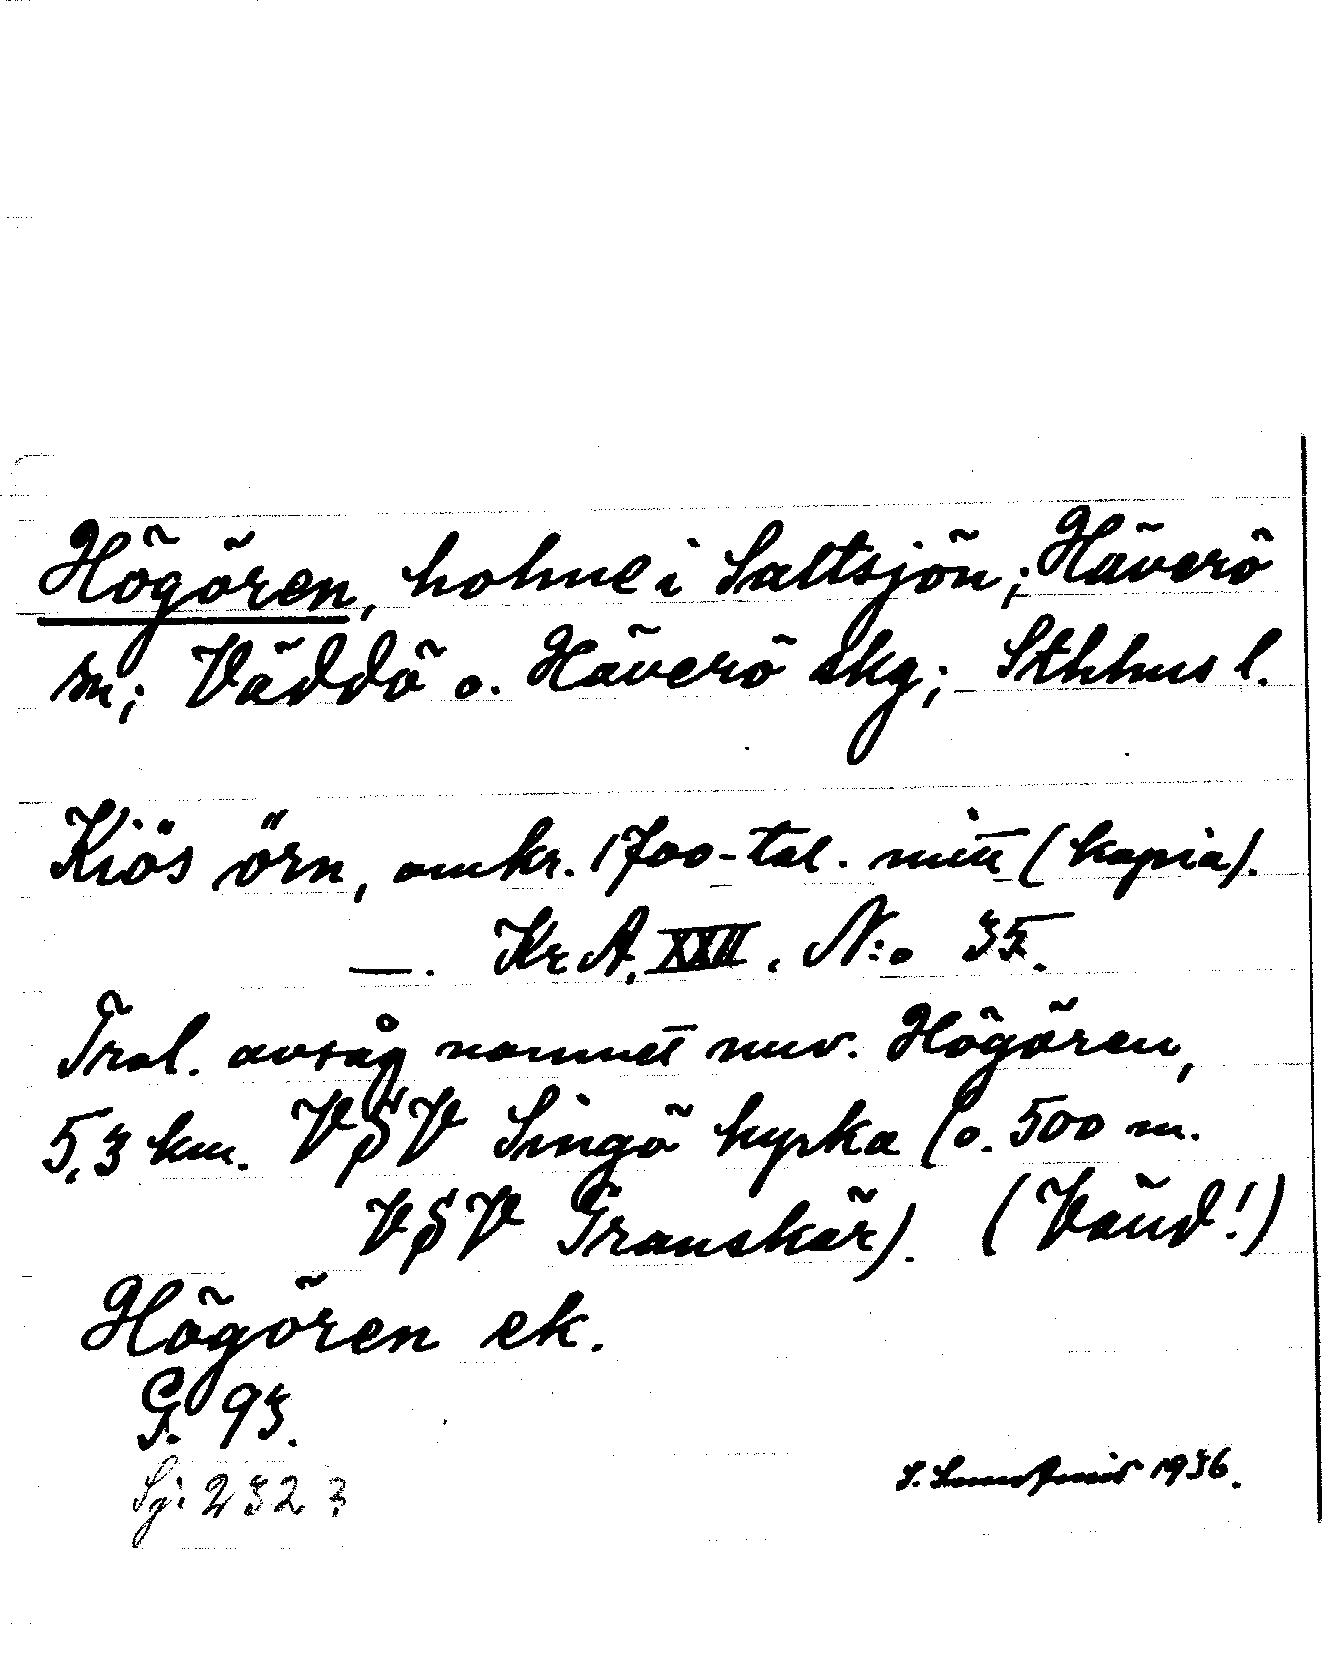 Högören, holme i Saltsjön; Häverö
sn; Väddö o. Häverö skg; Sthlms l.
Kiös örn, omkr. 1700-tal. mitt (kopia).
—. Kr.A. XXII. N:o 35.
Trol. avsåg namnet nuv. Högören,
5,3 km. VSV Singö kyrka (o. 500 m.
VSV Granskär). (Vänd!)
Högören ek.
G. 93.
1936.